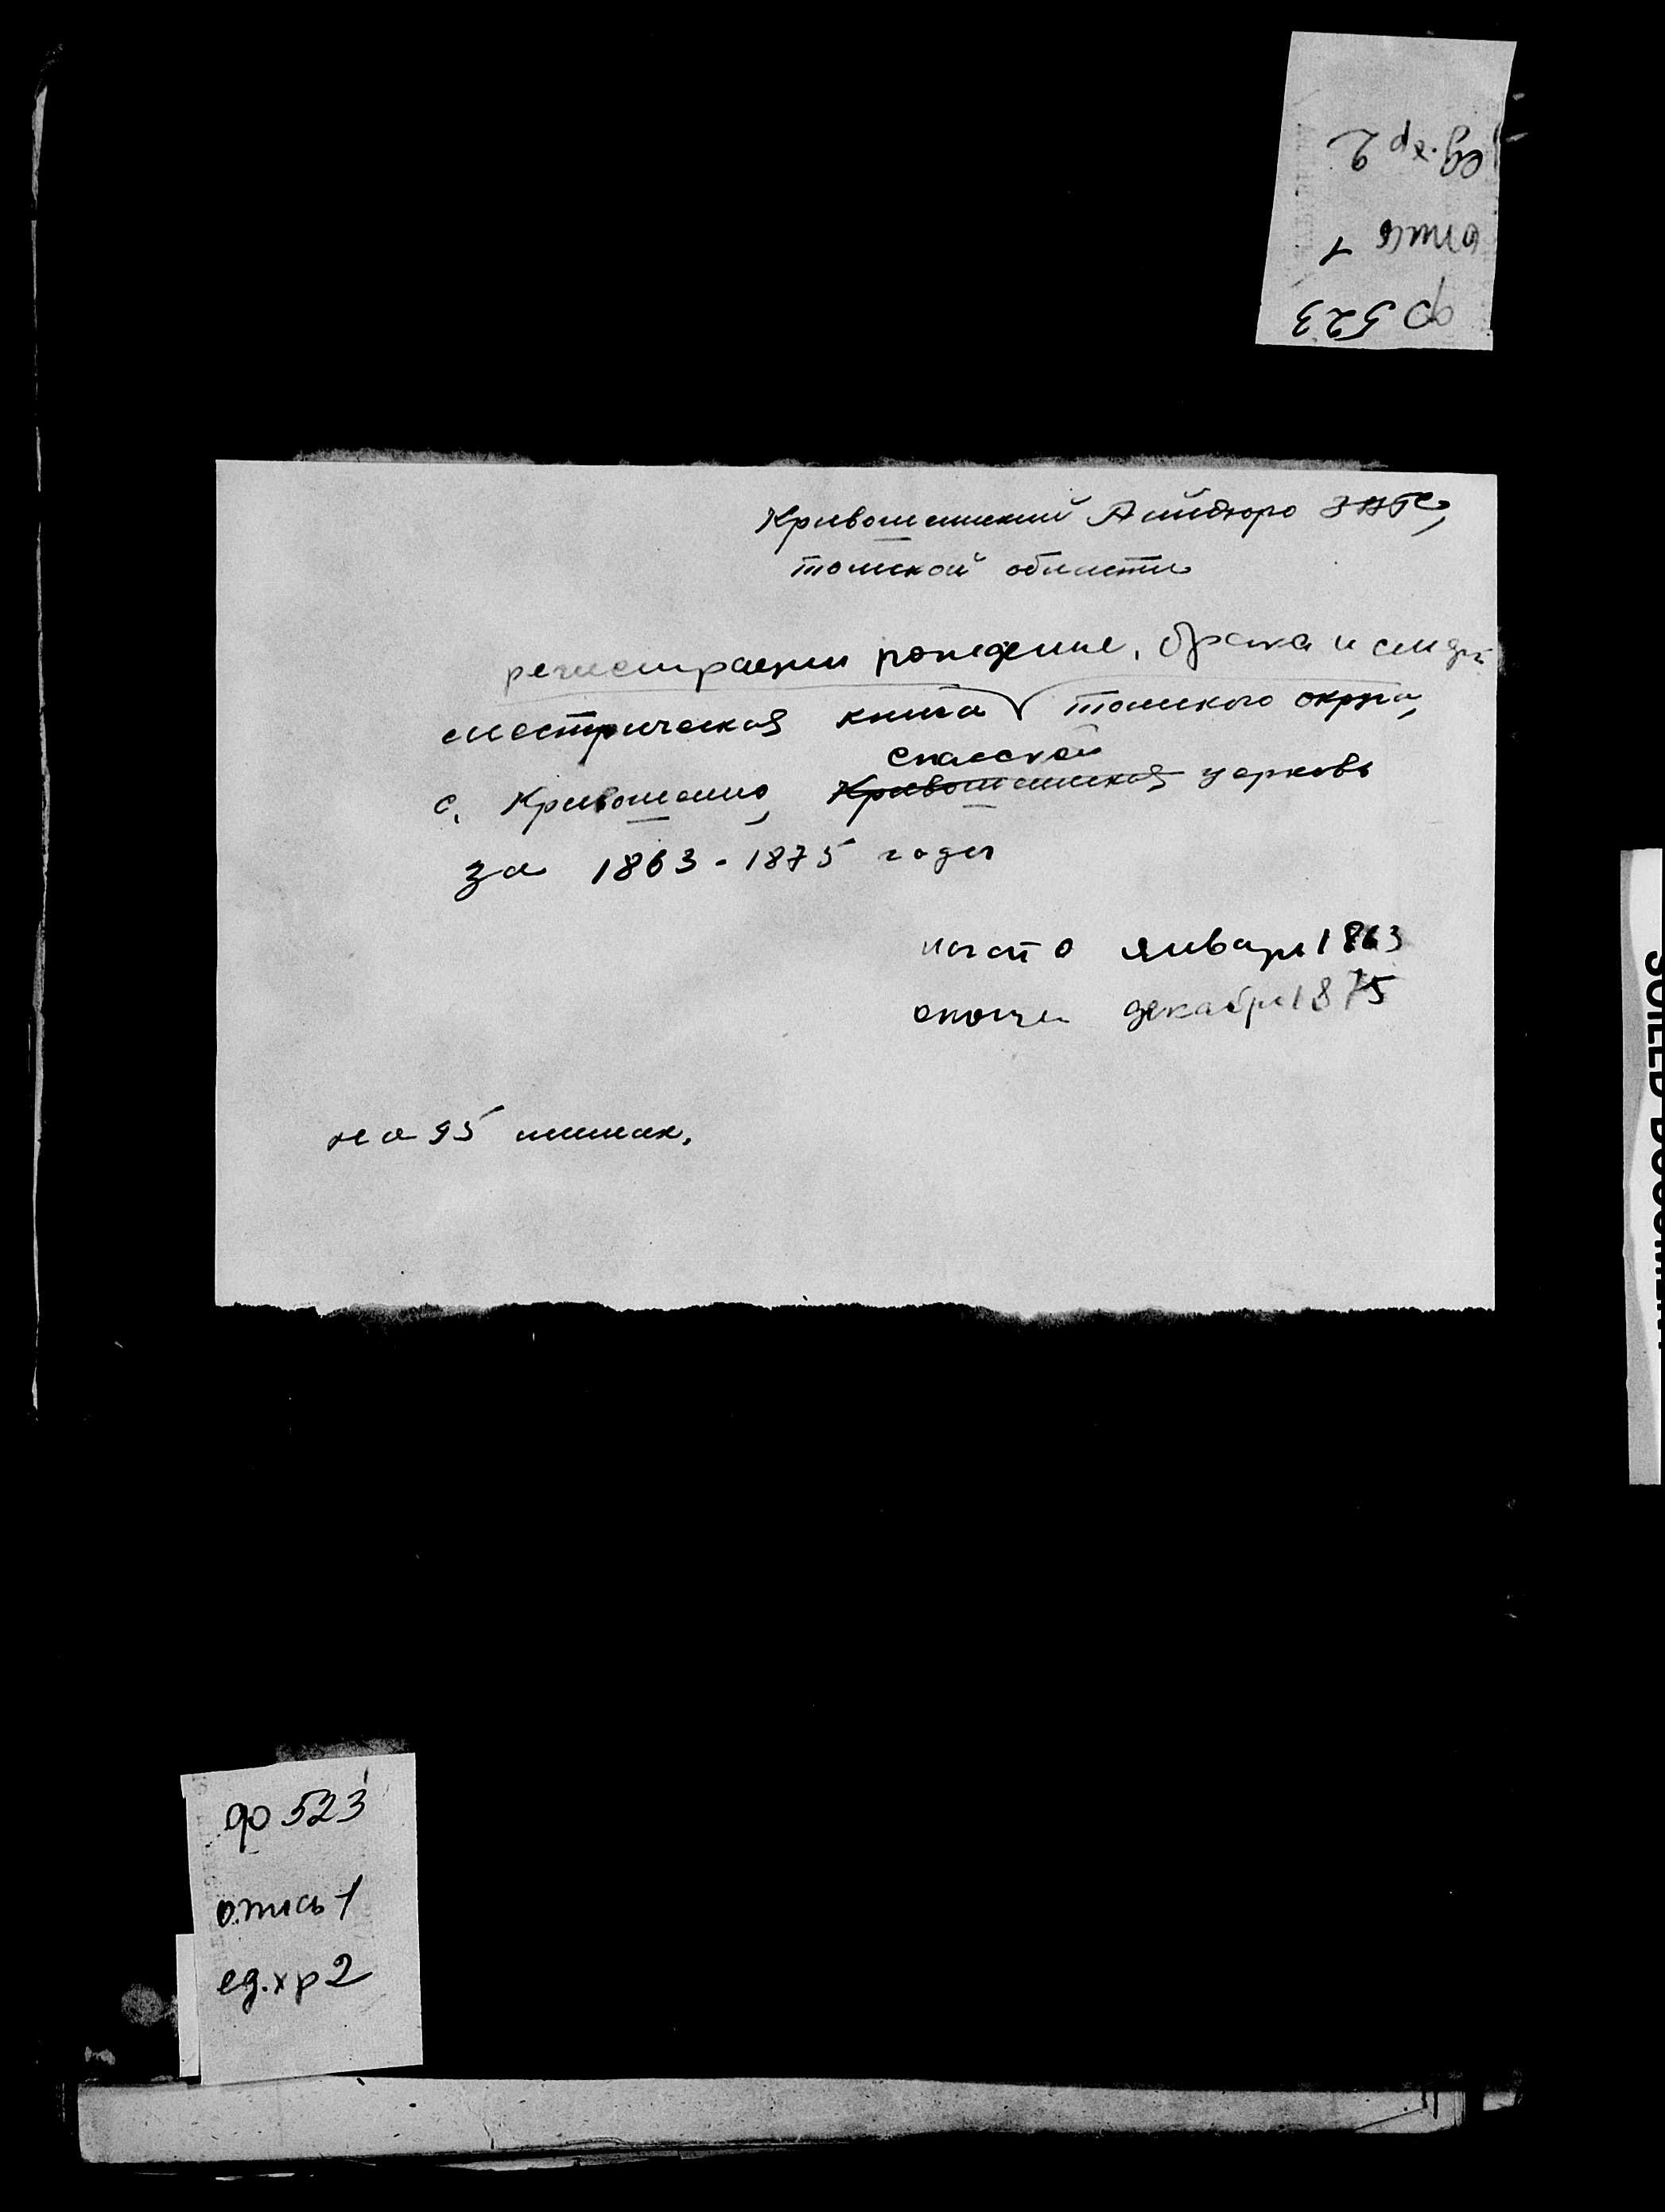 ед.хр 2
опись 1
ф 523
Кривошеинский Райбюро ЗАГС,
Томской области
регистрации рождение, брака и
метрическая книга Томского округа,
Спасской
с. Кривошеино, Кривошеинская церковь
за 1863-1875 годы
начато января 1863
оконч декабря 1875
на 95 листах.
ф 523
опись 1
ед.хр 2